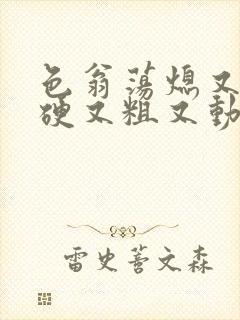 色翁荡熄又
硬又粗又動
雷史薈文森